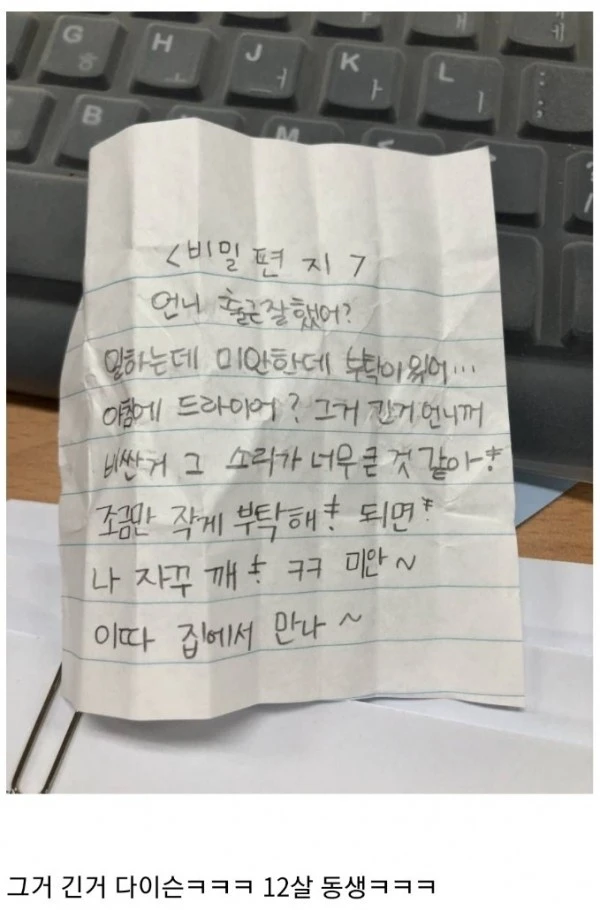 G ㅎ
H ㅗ
J ㅓ
K ㅏ
L ㅣ
B
M
<비밀 편 지>
언니 출근잘했어?
일하는데 미안한데 부탁이있어...
아침에 드라이어? 그거 긴거 언니꺼
비싼거 그 소리가 너무 큰 것 같아ㅠ
조금만 작게 부탁해ㅠ 되면ㅠ
나 자꾸 깨ㅠ ㅋㅋ 미안~
이따 집에서 만나~
그거 긴거 다이슨ㅋㅋㅋ 12살 동생ㅋㅋㅋ